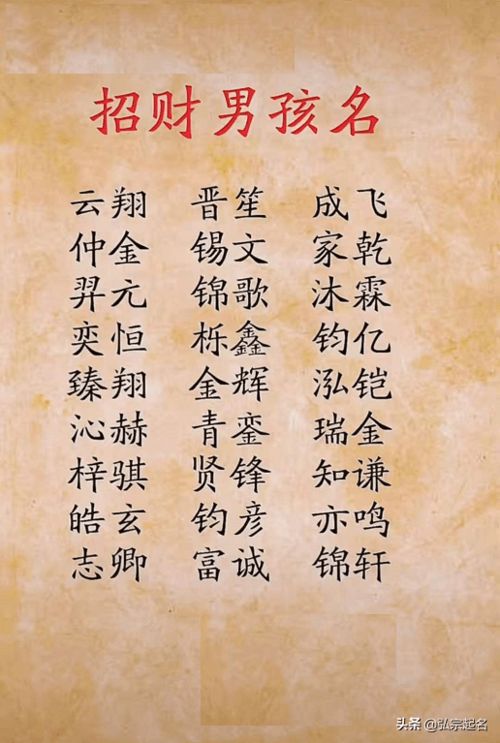 招财男孩名
云翔 晋笙 成飞
仲金 锡文 家乾
羿亢 锦歌 沐霖
奕恒 栎鑫 钧亿
臻翔 金辉 泓铠
沁赫 青銮 瑞金
梓骐 贤锋 知谦
皓玄 钧彦 亦鸣
志卿 富诚 锦轩
头条 @弘宗起名